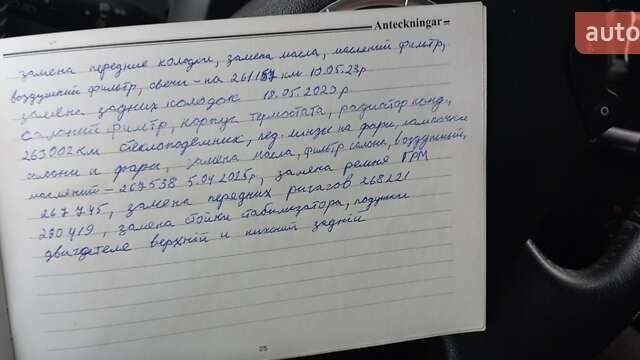 Anteckningar
auto
замена передние колодки, замена масла, маслений фильтр,
воздушний фильтр, свечи - на 261157 км 10.05.23р
замена задних колодок 18.05.2023р
салоний фильтр, корпус термостата, радиатор конд.,
263002км стеклоподёмник, лед. линзы на фары, лампочки
салони и фары, замена масла, фильтр салона, воздушный,
масляний - 267538 5.04.2025р, замена ремня ГРМ
267.745, замена передних ричагов 268221
290.419, замена стойки стабилизатора, подушки
двигателе верхній и нижний задній
25